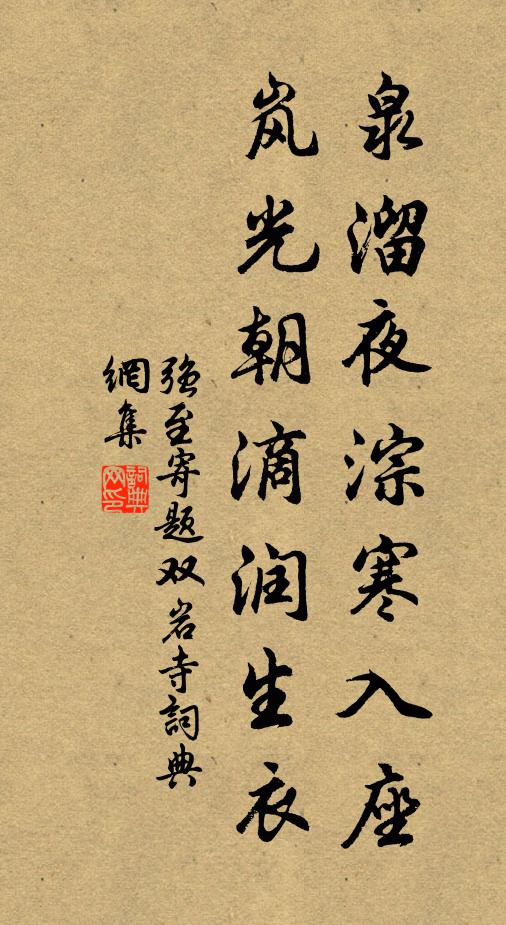 泉溜夜淙寒入座
岚光朝滴润生衣
强至寄题双岩寺詞典
網集
詞典网印